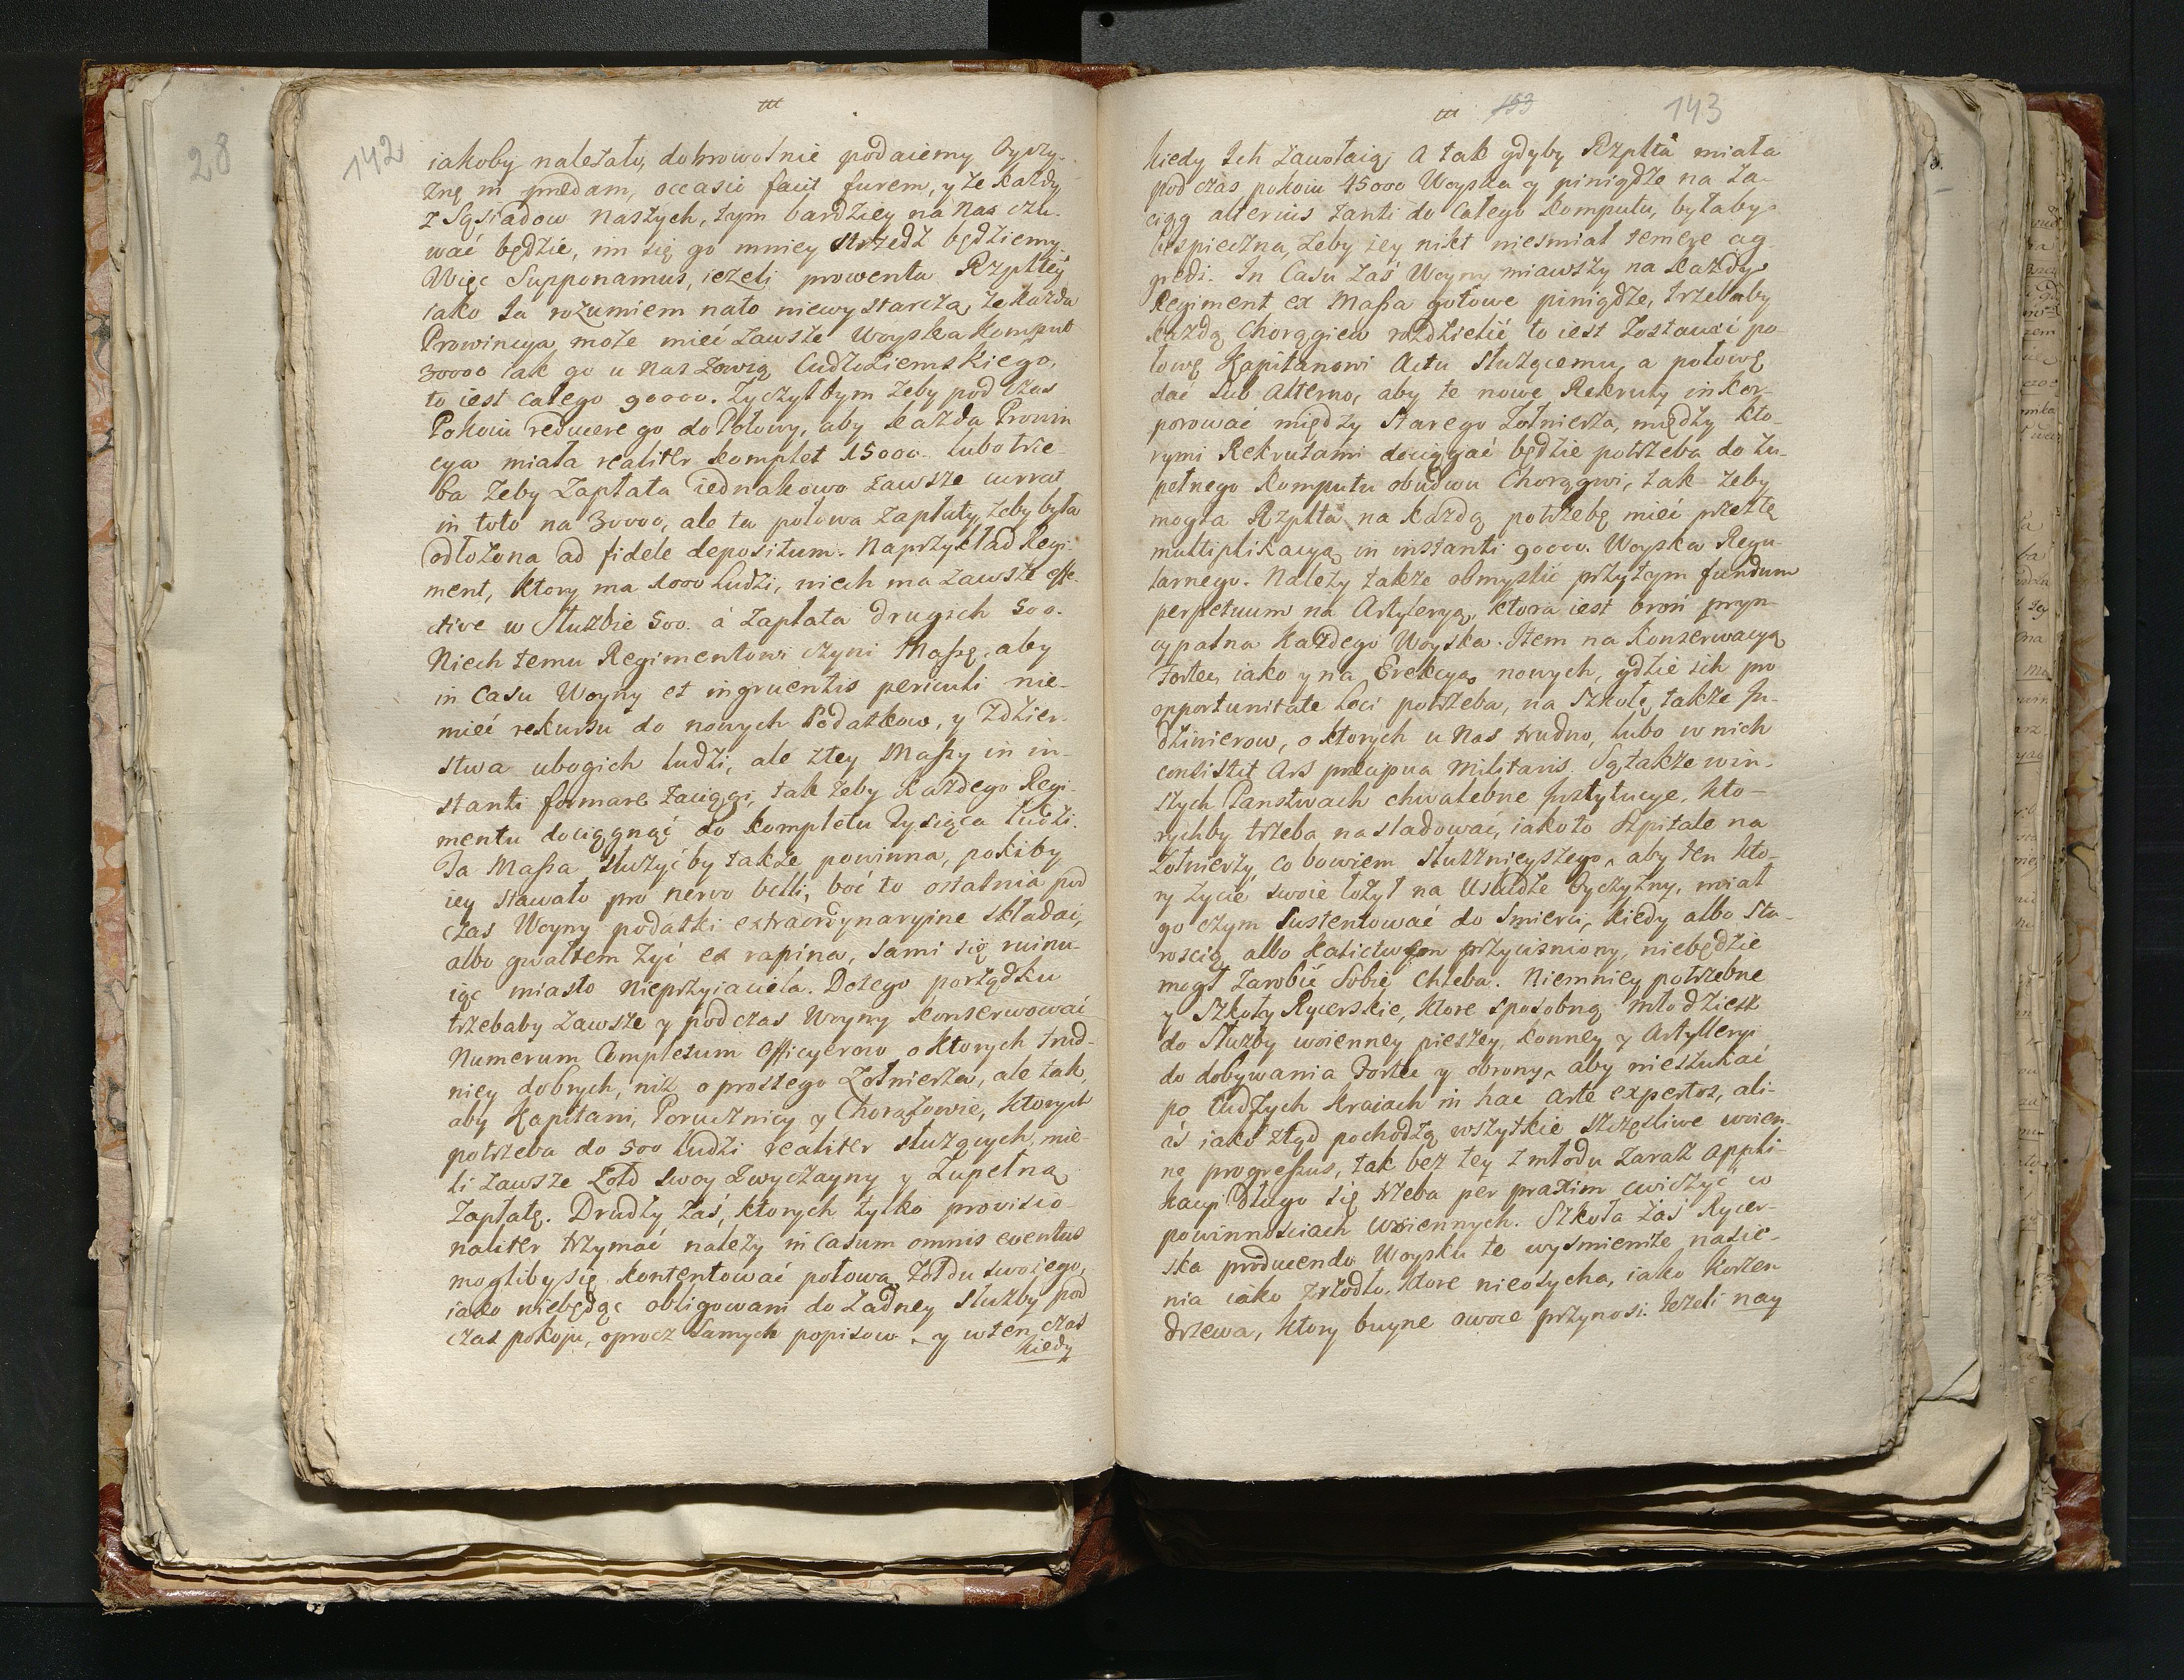 28
142
iakoby należało, dobrowolnie podaiemy Oyczy-
znę in prædam, occasio facit furem, y że każdy
z Sąsiadow Naszych, tym bardziey na Nas czu-
wać będzie, im się go mniey strzedz będziemy.
Więc Supponamus, ieżeli prowenta Rzpltey
iako Ja rozumiem nato niewystarczą, że każda
Prowincya może mieć zawsze Woyska komput
30000 iak go u Nas zowią Cudzoziemskiego,
to iest całego 90000. Zyczył bym żeby pod czas
Pokoiu reducere go do Połowy, aby każda Prowin
cya miała realiter komplet 15000. lubo trze-
ba żeby Zapłata iednakowo zawsze currat
in toto na 30000, ale ta połowa zapłaty, żeby była
odłożona ad fidele depositum. Naprzykład Regi-
ment, ktory ma 1000 Ludzi, niech ma zawsze effe-
ctive w służbie 500. á zapłata drugich 500.
Niech temu Regimentowi czyni Massę, aby
in Casu Woyny et ingruentis periculi nie-
mieć rekursu do nowych Podatkow, y zdzier-
stwa ubogich ludzi, ale z tey Massy in in-
stanti formare zaciągi, tak żeby każdego Regi-
mentu dociągnąć do kompletu Tysiąca ludzi.
Ta Massa służyć by także powinna, pokiby
iey stawało pro nervo belli, boć to ostatnia pod
czas Woyny podatki extraordynaryine składać,
albo gwałtem żyć ex rapina, sami się ruinu-
iąc miasto nieprzyiaciela. Do tego porządku
trzebaby zawsze y podczas Woyny konserwować
Numerum Completum Officyerow o ktorych trud-
niey dobrych, niż o prostego Zołnierza, ale tak,
aby Kapitani, Porucznicy y Chorążowie, ktorych
potrzeba do 500 ludzi realiter służących, mie-
li zawsze Zołd swoy zwyczayny y zupełną
Zapłatę. Drudzy zaś, ktorych tylko provisio-
naliter trzymać należy in Casum omnis eventus
mogliby się kontentować połową żołdu swoiego,
iako niebędąc obligowani do żadney służby pod
czas pokoju, oprocz samych popisow, y wten czas
kiedy
153 143
kiedy Ich zawołaią; A tak gdyby Rzplta miała
pod czas pokoiu 45000 Woyska y pinigdze na za-
ciąg alterius tanti do Całego komputu, byłaby
bespieczna, żeby iey nikt niesmiał temere ag-
gredi. In Casu zaś Woyny miawszy na każdy
Regiment ex Massa gotowe pinigdze, trzebaby
każdą Chorągiew rozdzielić to iest zostawić po-
łowę Kapitanowi Actu służącemu, a połowę
dać Sub Alterno, aby te nowe Rekruty inkor-
porować między starego żołnierza, między kto-
rymi Rekrutami dociągać będzie potrzeba do zu-
pełnego komputu obudwu Chorągwi, tak żeby
mogła Rzplta na każdą potrzebę mieć przez tę
multiplikacyą in instanti 90000. Woyska Regu-
larnego. Należy także obmyslić przytym fundum
perpetuum na Artyleryą, ktora iest broń pryn-
cypalna każdego Woyska. Item na konserwacyą
Fortec, iako y na Erekcyą nowych, gdzie ich pro
opportunitate Loci potrzeba, na szkołę także In-
dzinierow, o ktorych u Nas trudno, lubo w nich
consistit Ars præcipua Militaris. Są także win-
szych Panstwach chwalebne Instytucye, kto-
rychby trzeba nasladować, iakoto Szpitale na
Zołnierzy, co bowiem słusznieyszego, aby ten kto-
ry życie swoie łożył na Usłudze Oyczyzny, miał
go czym Sustentować do smierci, kiedy albo sta-
roscią albo kalictwem przycisniony, niebędzie
mogł zarobić Sobie Chleba. Niemniey potrzebne
y Szkoły Rycerskie, ktore sposobną młodziesz
do Służby woienney pieszey, konney y Artylleryi
do dobywania Fortec y obrony, aby nieszukać
po Cudzych kraiach in hac Arte expertos, ali-
as iako ztąd pochodzą wszytkie szczęsliwe woien-
ne progressus, tak bez tey z młodu zaraz appli-
kacyi Długo się trzeba per praxim cwiczyć w
powinnosciach woiennych. Szkoła zaś Rycer-
ska producendo Woysku te wysmienite nasie-
nia iako zrzodło, ktore nieosycha, iako korzen
drzewa, ktory buyne owoce przynosi. Ieżeli nay